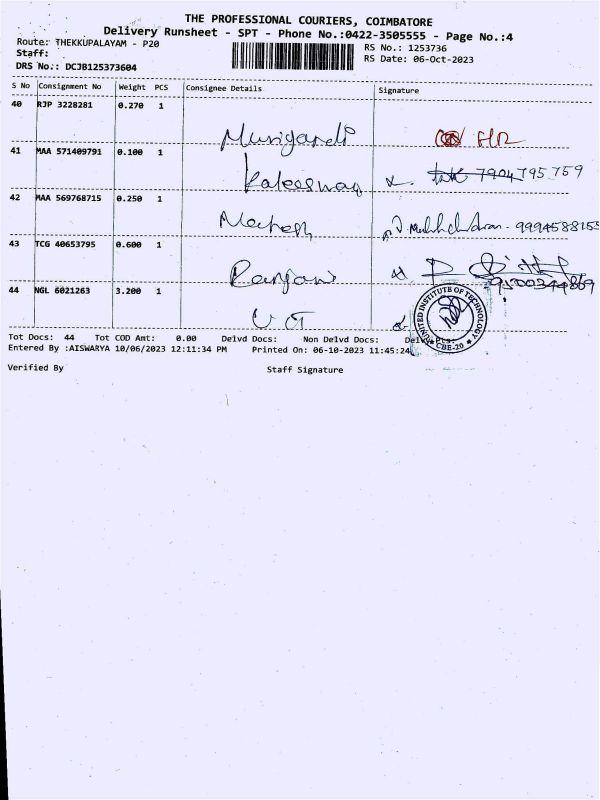 THE PROFESSIONAL COURIERS, COIMBATORE
Delivery Runsheet - SPT - Phone No.:0422-3505555 - Page No.:4
Route: THEKKUPALAYAM - P20
RS No.: 1253736
Staff:
RS Date: 06-Oct-2023
DRS No.: DCJB125373604
S No Consignment No Weight PCS Consignee Details Signature
40 RJP 3228281 0.270 1
Murigandi HR
41 MAA 571409791 0.100 1
Kaleeswar 7904795759
42 MAA 569768715 0.250 1
Mahesh 9994588155
43 TCG 40653795 0.600 1
Ranjani 9500344869
44 NGL 6021263 3.200 1
U I T
UNITED INSTITUTE OF TECHNOLOGY
CBE-20
Tot Docs: 44 Tot COD Amt: 0.00 Delvd Docs: Non Delvd Docs: Delvd Pcs:
Entered By :AISWARYA 10/06/2023 12:11:34 PM Printed On: 06-10-2023 11:45:24
Verified By Staff Signature